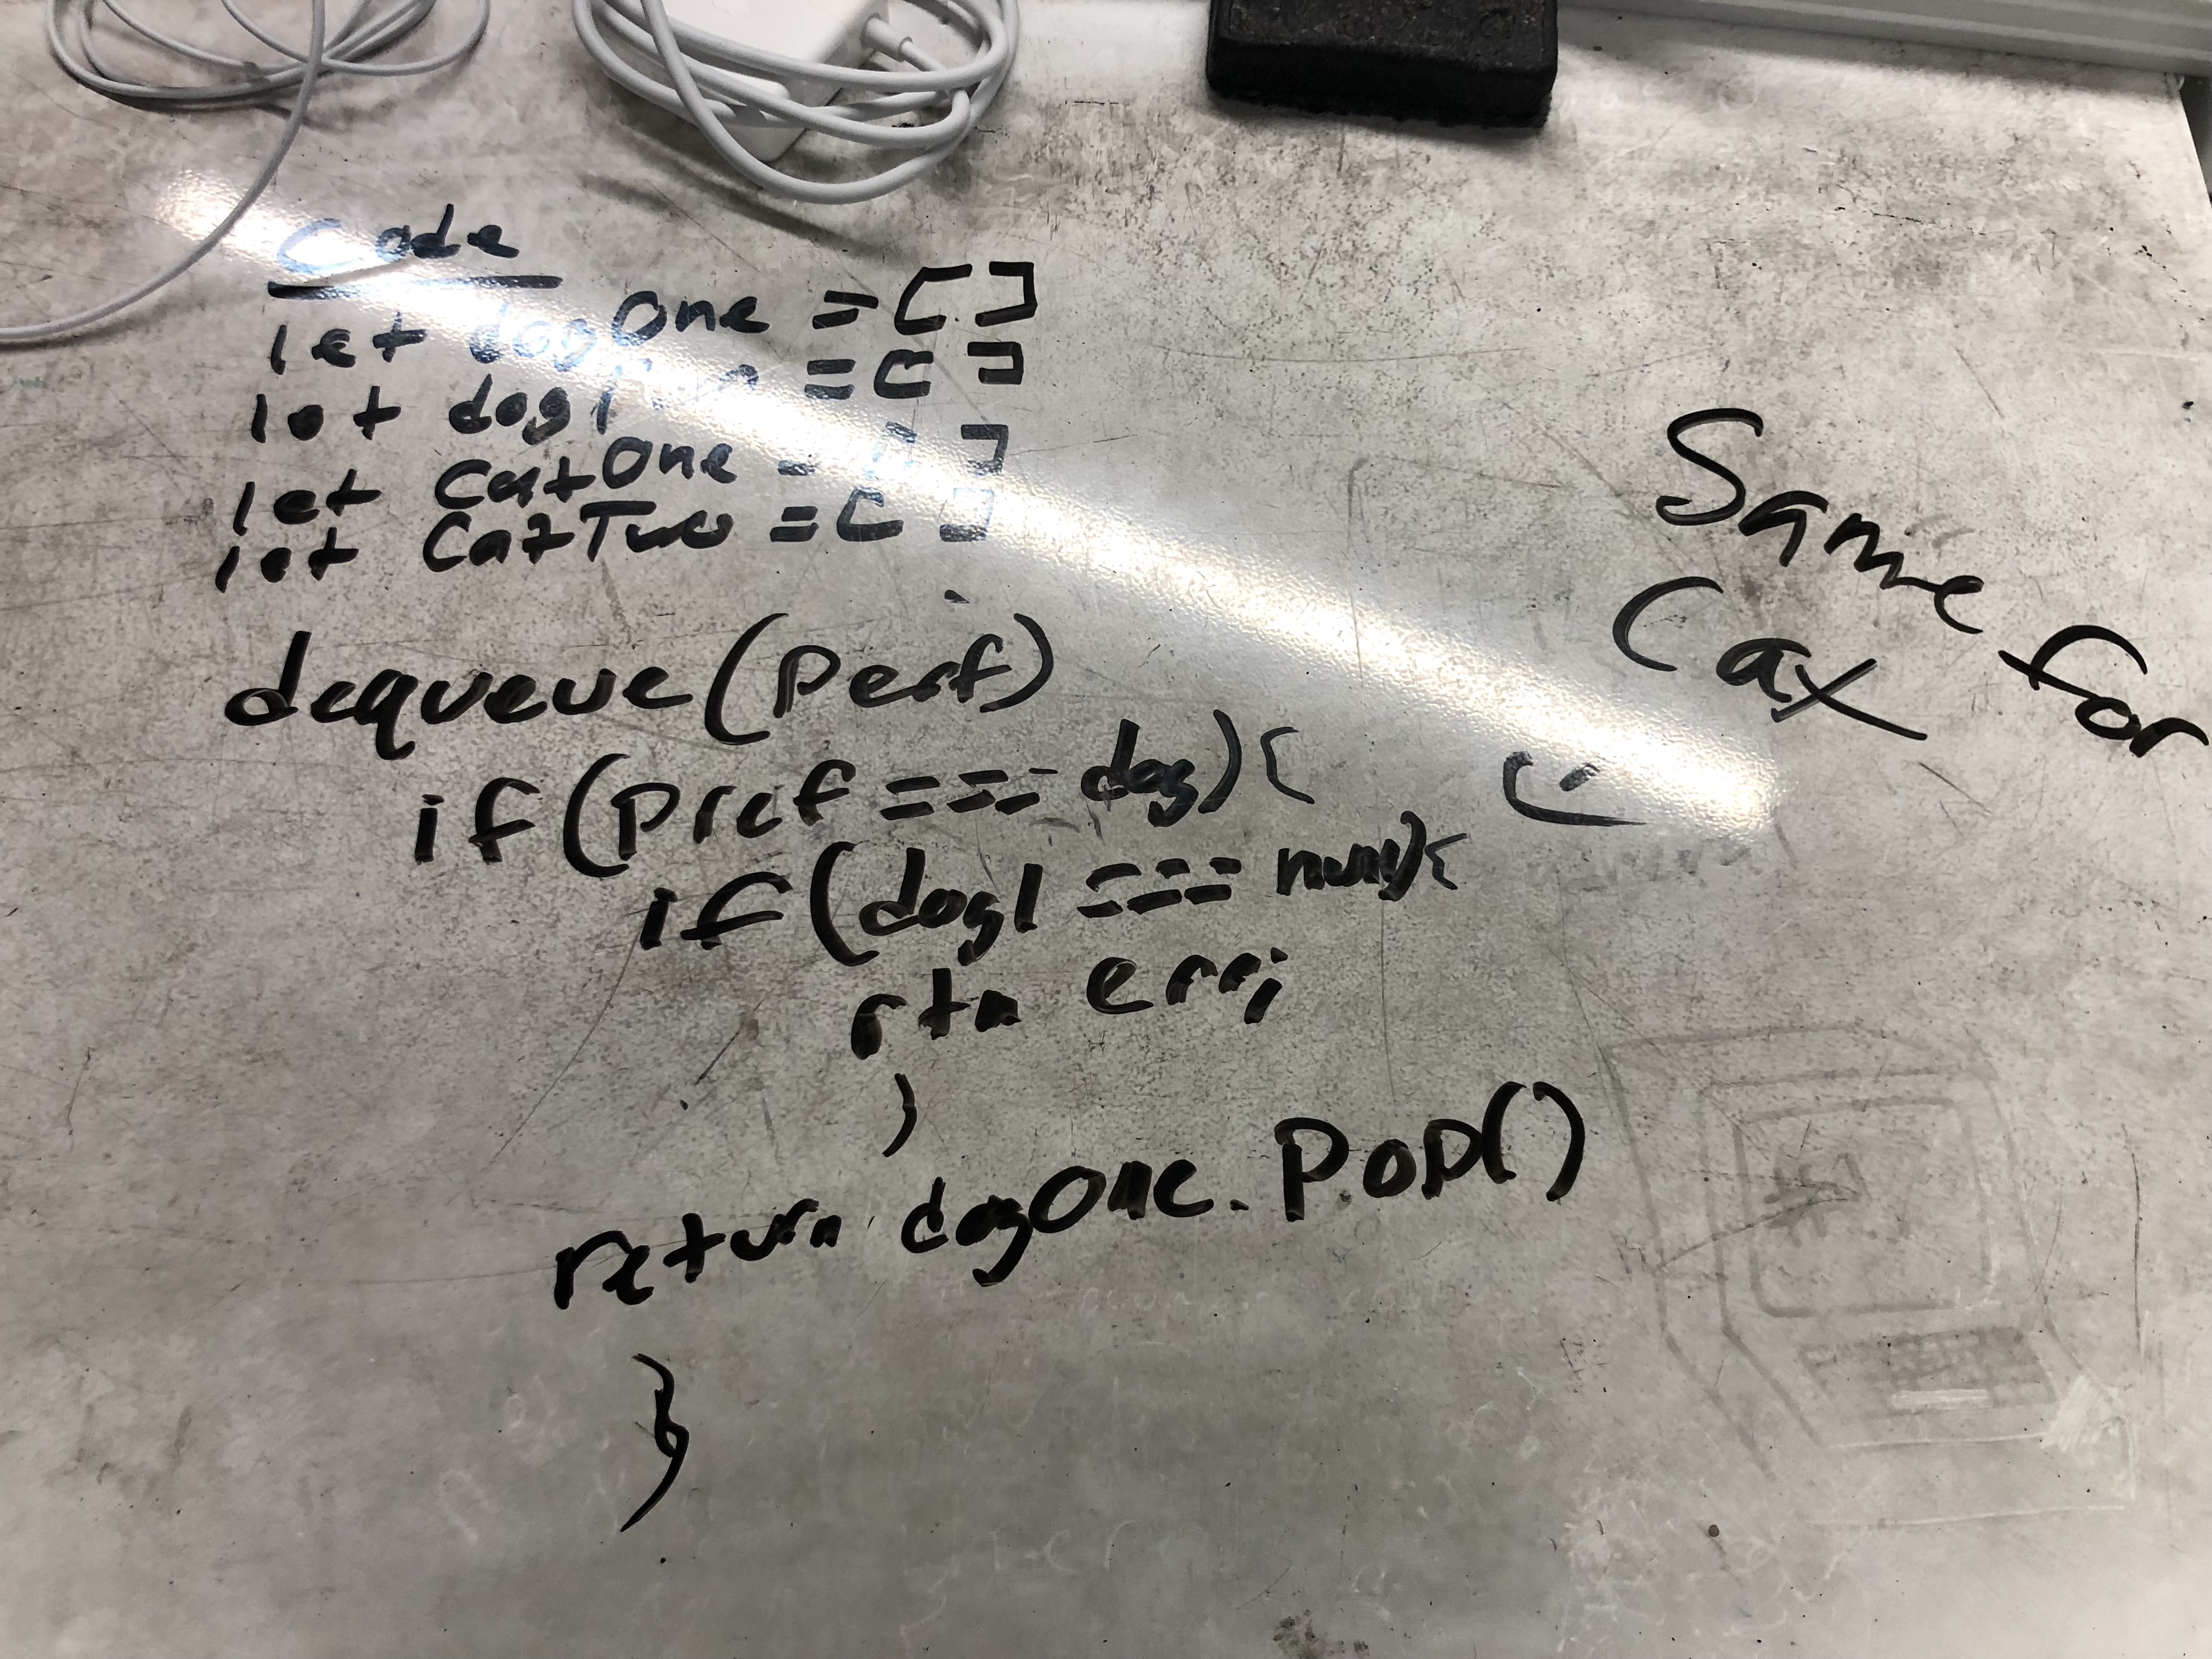 Code
let dogOne = [ ]
let dog = [ ]
let CatOne = [ ]
let CatTwo = [ ]
dequeue(Perf)
if(Pref === dog){
if(dog1 ===
rtn err;
}
return dogOne.POP()
}
Same for
Cat